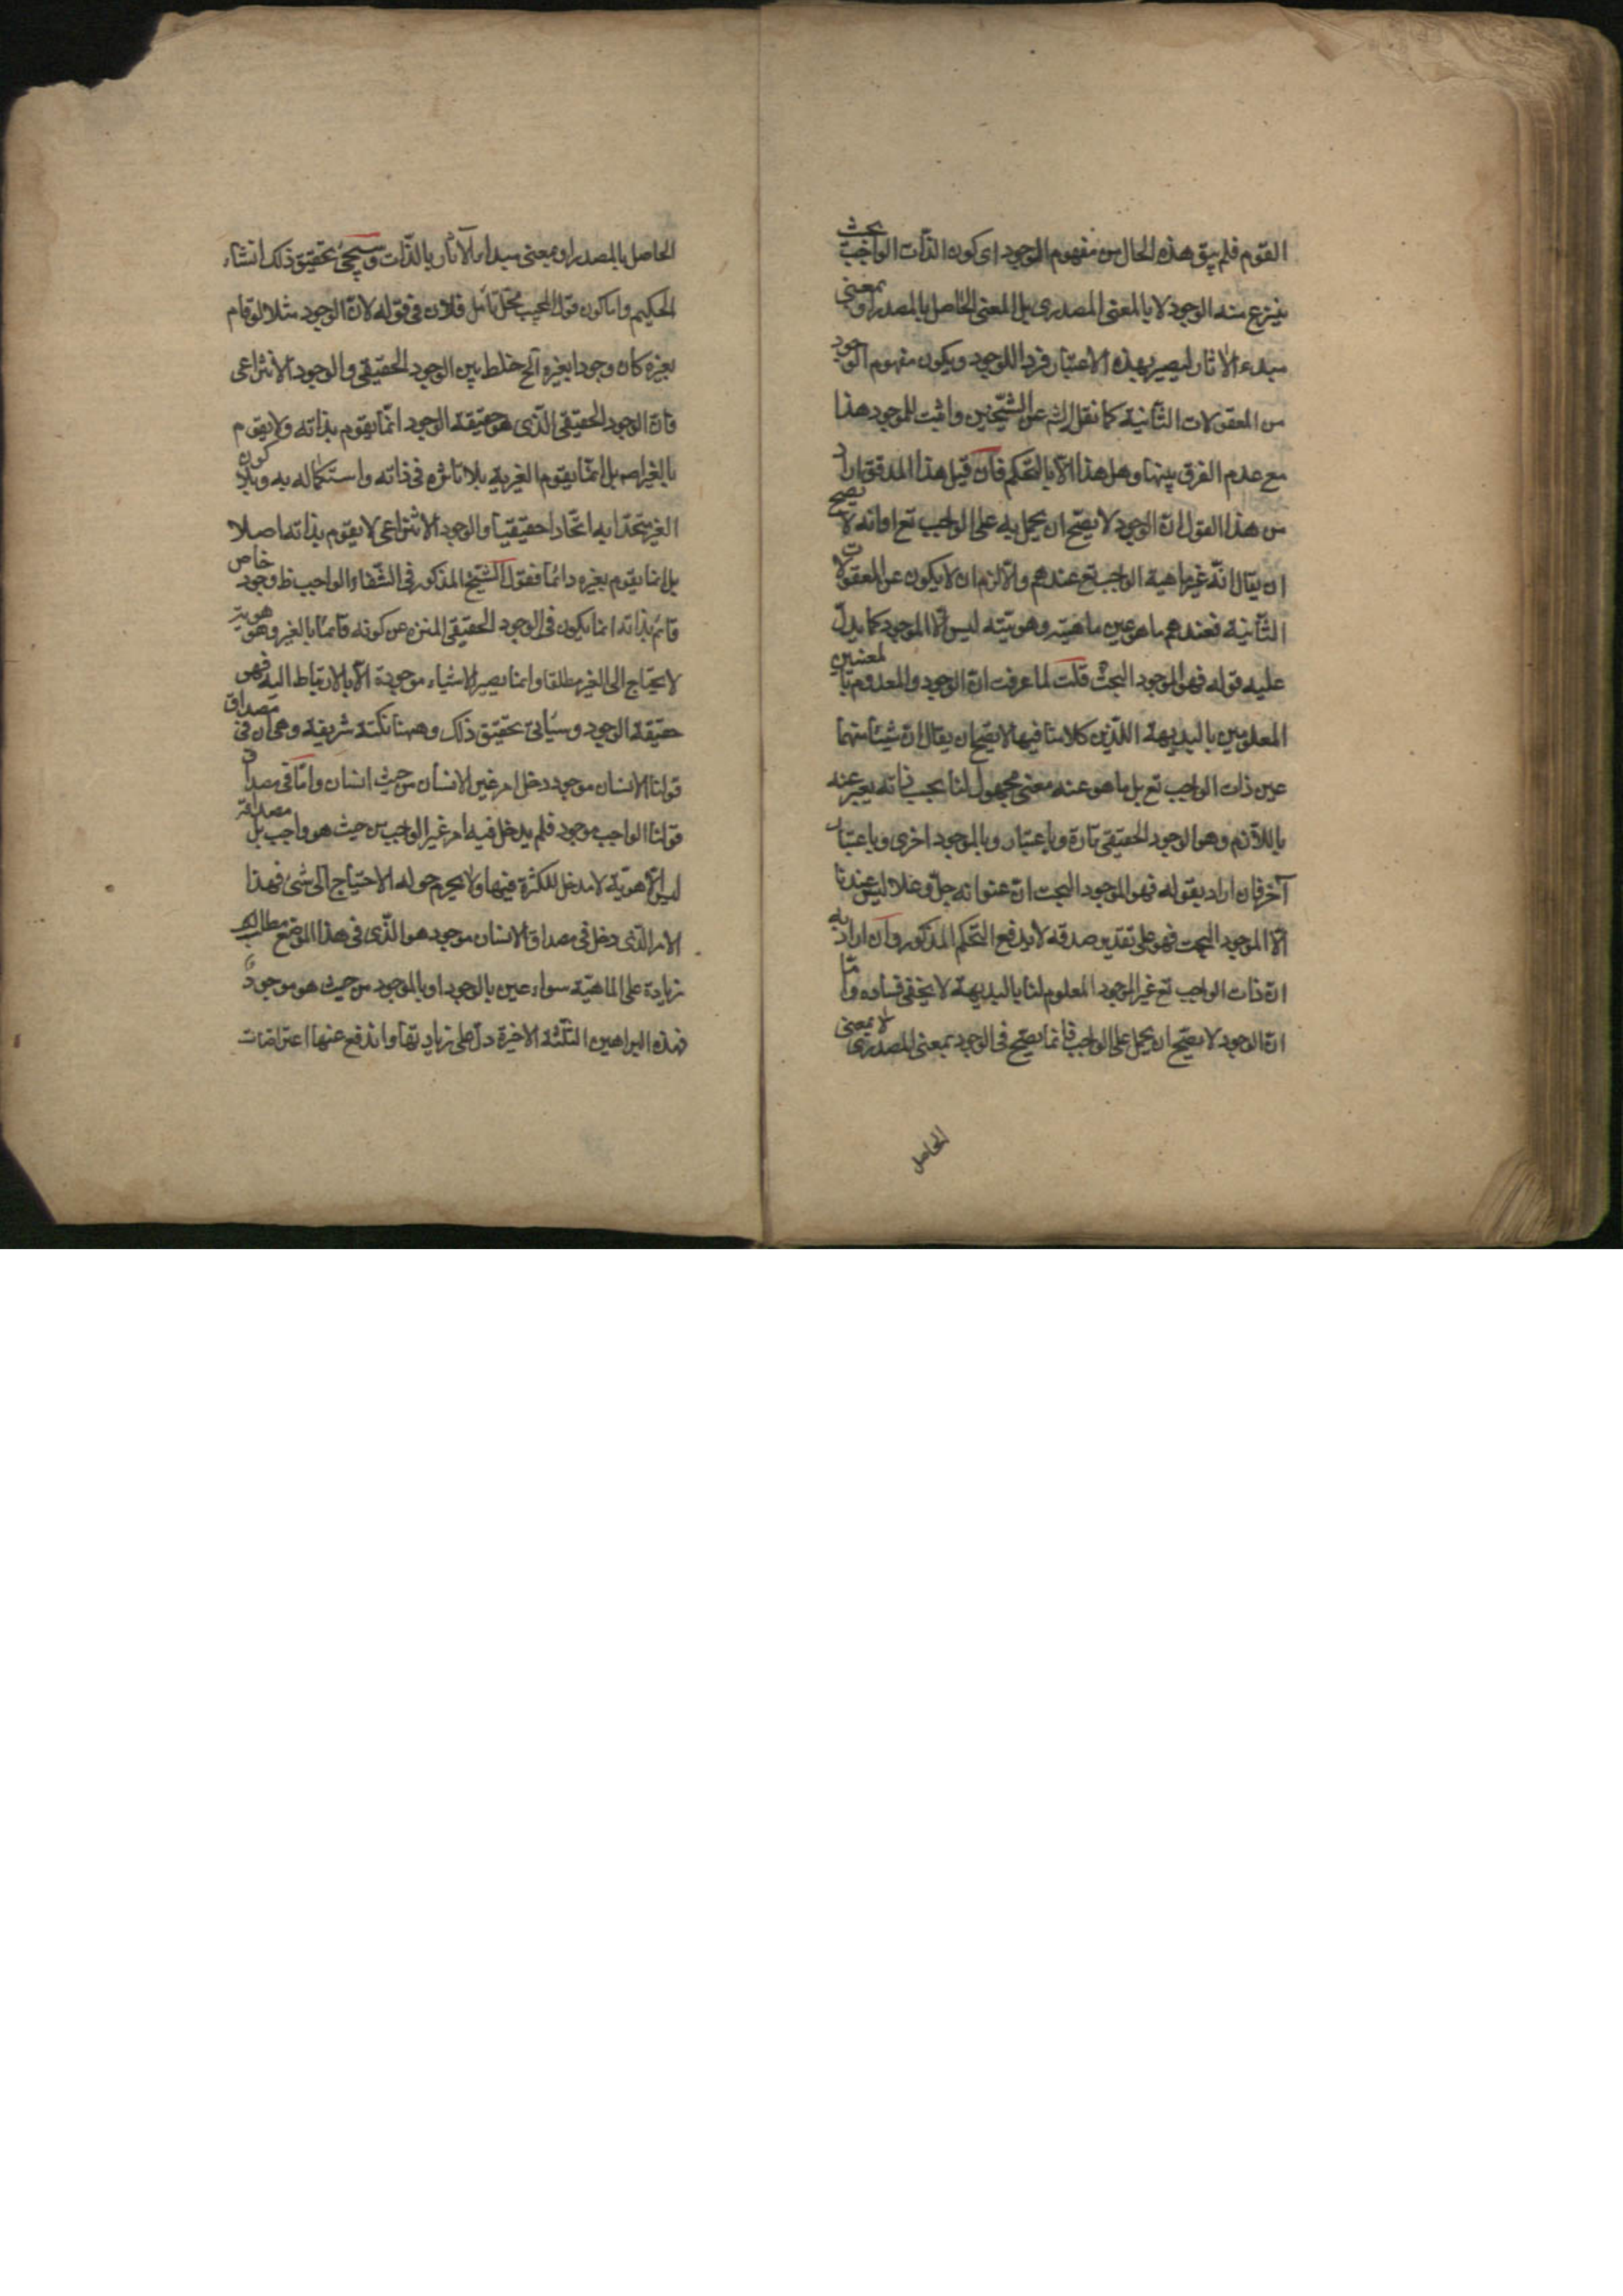 القوم فلم يبق هذه الحال من مفهوم الوجود اى كون الذات الواجب بحيث
ينزع منه الوجود لا بالمعنى المصدرى بل المعنى الحاصل بالمصدر او بمعنى
مبدء الاثار ليصير بهذه الاعتبار فردا للوجود ويكون مفهوم الوجود
من المعقولات الثانية كما نقل الش عن الشيخين واثبت للموجود هذا
مع عدم الفرق بينها وهل هذا الا بالتحكم فان قيل هذا المدقق اراد
من هذا القول ان الوجود لا يصح ان يحمل به على الواجب تع اوانه لا يصح
ان يقال انه غير ماهية الواجب تع عندهم والا لزم ان لا يكون عن المعقولات
الثانية فعندهم ما هو عين ماهيته وهويته ليس الا الموجود كما يدل
عليه قوله فهو الموجود البحث قلت لما عرفت ان الوجود والمعدوم بالمعنيين
المعلومين بالبديهة اللذين كلامنا فيها لا يصح ان يقال ان شيئا منهما
عين ذات الواجب تع بل ما هو عنه معنى مجهول لنا بحسب ذاته يعبر عنه
باللازم وهو الوجود الحقيقى تارة وباعتبار وبالموجود اخرى وباعتبار
آخر فان اراد بقوله فهو الموجود البحت ان عنوانه جل وعلا ليس عندنا
الا الموجود البحت فهو على تقدير صدقه لا يدفع التحكم المذكور وان اراد به
ان ذات الواجب تع غير الموجود المعلوم لنا بالبديهة لا يخفى فساده واما
ان الوجود لا يصح ان يحمل على الواجب فانما يصح فى الوجود بمعنى المصدرى لا بمعنى
الحاصل
الحاصل بالمصدر او بمعنى مبدا الآثار بالذات وسيجئ تحقيق ذلك انشاء
الحكيم واما كون قول المجيب محل تأمل فلان فى قوله لان الوجود مثلا لو قام
بغيره كان وجودا بغيره الخ خلط بين الوجود الحقيقى والوجود الانتزاعى
فان الوجود الحقيقى الذى هو حقيقة الوجود انما يقوم بذاته ولا يقوم
بالغير اصه بل انما يقوم الغير به بلا تاثره فى ذاته واستكماله به وبلا كون
الغير متحدا به اتحادا حقيقيا والوجود الانتزاعى لا يقوم بذاته اصلا
بل انما يقوم بغيره دائما فقول الشيخ المذكور فى الشفاء الواجب ظ وجود خاص
قائم بذاته انما يكون فى الوجود الحقيقى المنزه عن كونه قائما بالغير وهو هويته
لا يحتاج الى الغير مطلقا وانما يصير الاشياء موجودة الا بالارتباط اليه فهو
حقيقة الوجود وسيأتى تحقيق ذلك وههنا نكتة شريفة وهى ان فى مصداق
قولنا الانسان موجود دخل امر غير الانسان من حيث انسان واما فى مصداق
قولنا الواجب موجود فلم يدخل فيه امر غير الواجب من حيث هو واجب بل مصداقه
ليس الا هوية لا مدخل للكثرة فيها ولا يحرم حوله الاحتياج الى شئ فهذا
الامر الذى دخل فى مصداق الانسان موجود هو الذى فى هذا الموضع مطالبه
زيادة على الماهية سواء عبر بالوجود او بالموجود من حيث هو موجود
فهذه البراهين الثلثة الاخيرة دل على زيادتها واندفع عنها اعتراضات